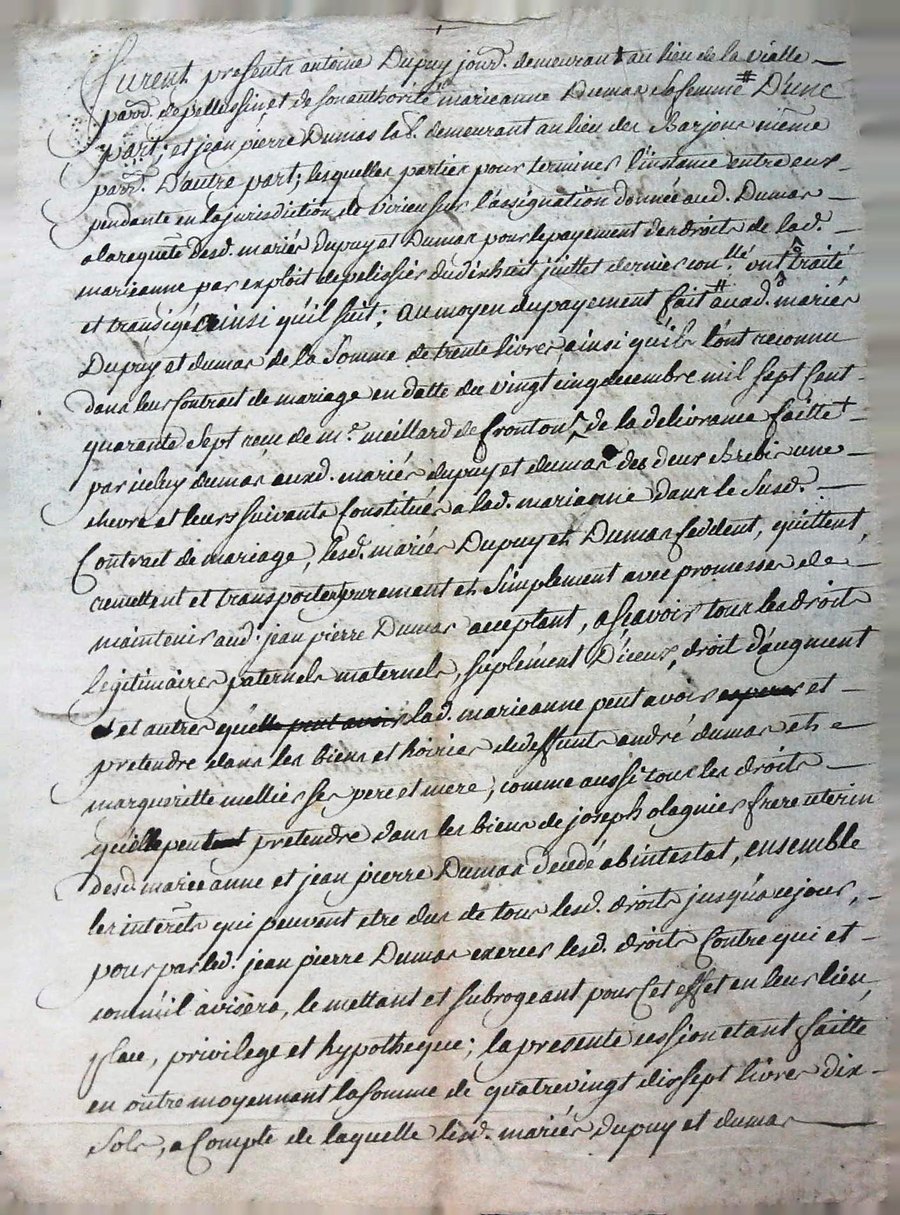 furent presents antoine Dupuy jourd. demeurant au lieu de la vialle
parr. de pellussin, et de son authorité marieanne Dumas sa femme # D'une
part; et jean pierre Dumas lab. demeurant au lieu des Barjons même
parr. D'autre part; lesquelles parties pour terminer l'instance entre eux
pendante en la jurisdiction de virieu sur l'assignation donnée aud. Dumas
a la requete desd. mariés Dupuy et Dumas pour le payement des droits de lad.
marieanne par exploit de pelissier du dixhuit juillet dernier con.llé ont traité
et transigé ainsi qu'il suit; au moyen du payement fait # auxd. mariés
Dupuy et dumas de la somme de trente livres, ainsi qu'ils l'ont reconnu
dans leur Contrat de mariage en datte du vingt cinq decembre mil sept Cent
quarante sept reçu de m.e meillard de fronton, de la delivrance faitte
par iceluy dumas auxd. mariés dupuy et dumas des deux Brebis une
chevre et leurs suivants Constitués a lad. marianne dans le susd.
Contrait de mariage, lesd. mariés Dupuy et Dumas Ceddent, quittent,
remettent et transportent purement et simplement avec promesse de
maintenir aud. jean pierre Dumas acceptant, asçavoir tous les droits
legitimaires paternels maternels, suplement D'iceux, droit d'augment
et et autres qu'elle peut avoir lad. marieanne peut avoir esperer et
pretendre dans les biens et hoiries de deffunts andré dumas et
margueritte mellier ses pere et mere; comme aussi tous les droits
qu'elle peut pretendre dans les biens de joseph olagnier frere uterin
desd. marieanne et jean pierre Dumas decedé abintestat, ensemble
les interêts qui peuvent etre dus de tous lesd. droits jusqu'a ce jour,
pour par led. jean pierre Dumas exercer lesd. droits Contre qui et
comme il avisera, le mettant et subrogeant pour Cet effet en leur lieu,
place, privilege et hypotheque; la presente cession etant faitte
en outre moyennant la somme de quatrevingt dixsept livres dix
sols, a Compte de laquelle lesd. mariés Dupuy et dumas